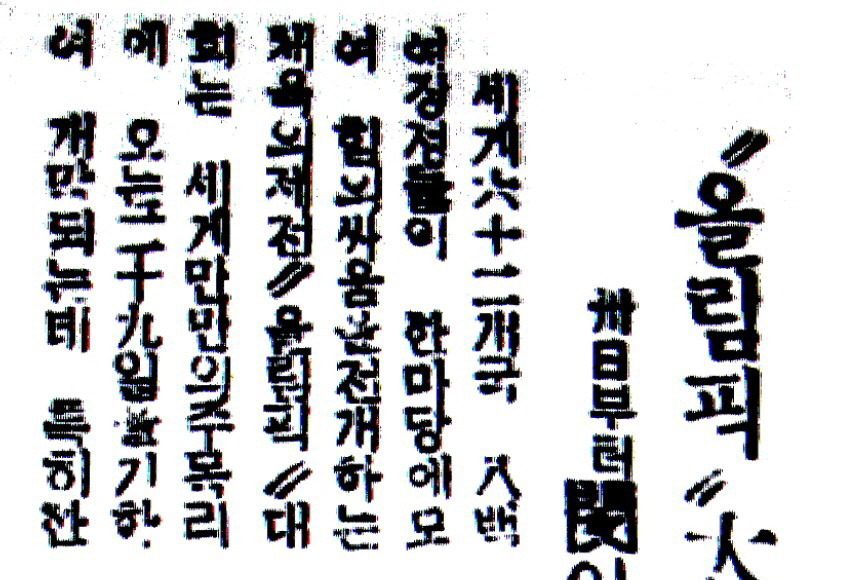 〃올림픽〃大
卅日부터開
세계六十二개국 八백
여장정들이 한마당에모
여 힘의싸움을전개하는
체육의제전〃올림픽〃대
회는 세계만민의주목리
에 오는二十九일을기하
여 개막되는데 특히한